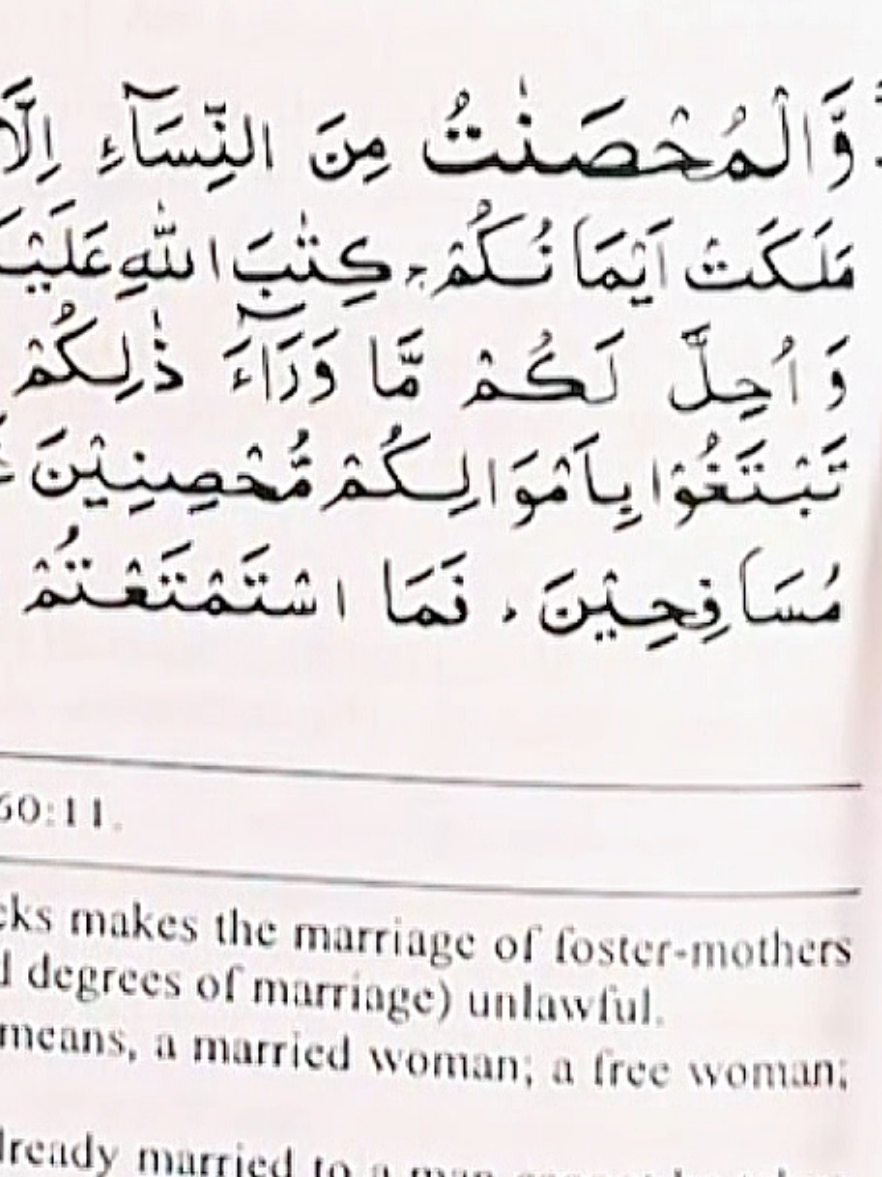 وَّالْمُحْصَنٰتُ مِنَ النِّسَآءِ اِلَّا
مَلَكَتْ اَيْمَانُكُمْ ۚ كِتٰبَ اللّٰهِ
وَ اُحِلَّ لَكُمْ مَّا وَرَآءَ ذٰلِكُمْ
تَبْتَغُوْا بِاَمْوَالِكُمْ مُّحْصِنِيْنَ
مُسَافِحِيْنَ ؕ فَمَا اسْتَمْتَعْتُمْ
60:11.
makes the marriage of foster-mothers
degrees of marriage) unlawful.
means, a married woman; a free woman;
married to a man